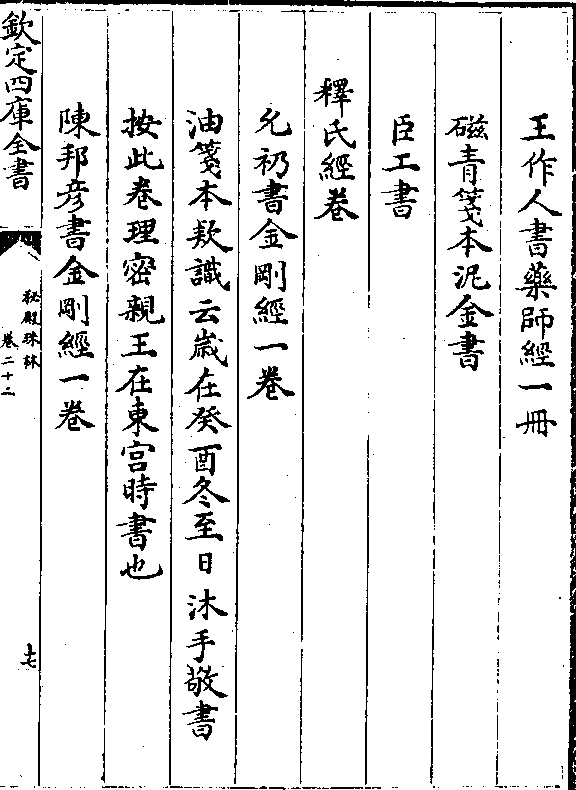 王作人書藥師經一冊
磁青箋本泥金書
臣工書
釋氏經卷
允礽書金剛經一卷
油箋本款識云歲在癸酉冬至日沐手敬書
按此卷理密親王在東宮時書也
陳邦彦書金剛經一卷
欽定四庫全書
秘殿珠林
卷二十二
十七